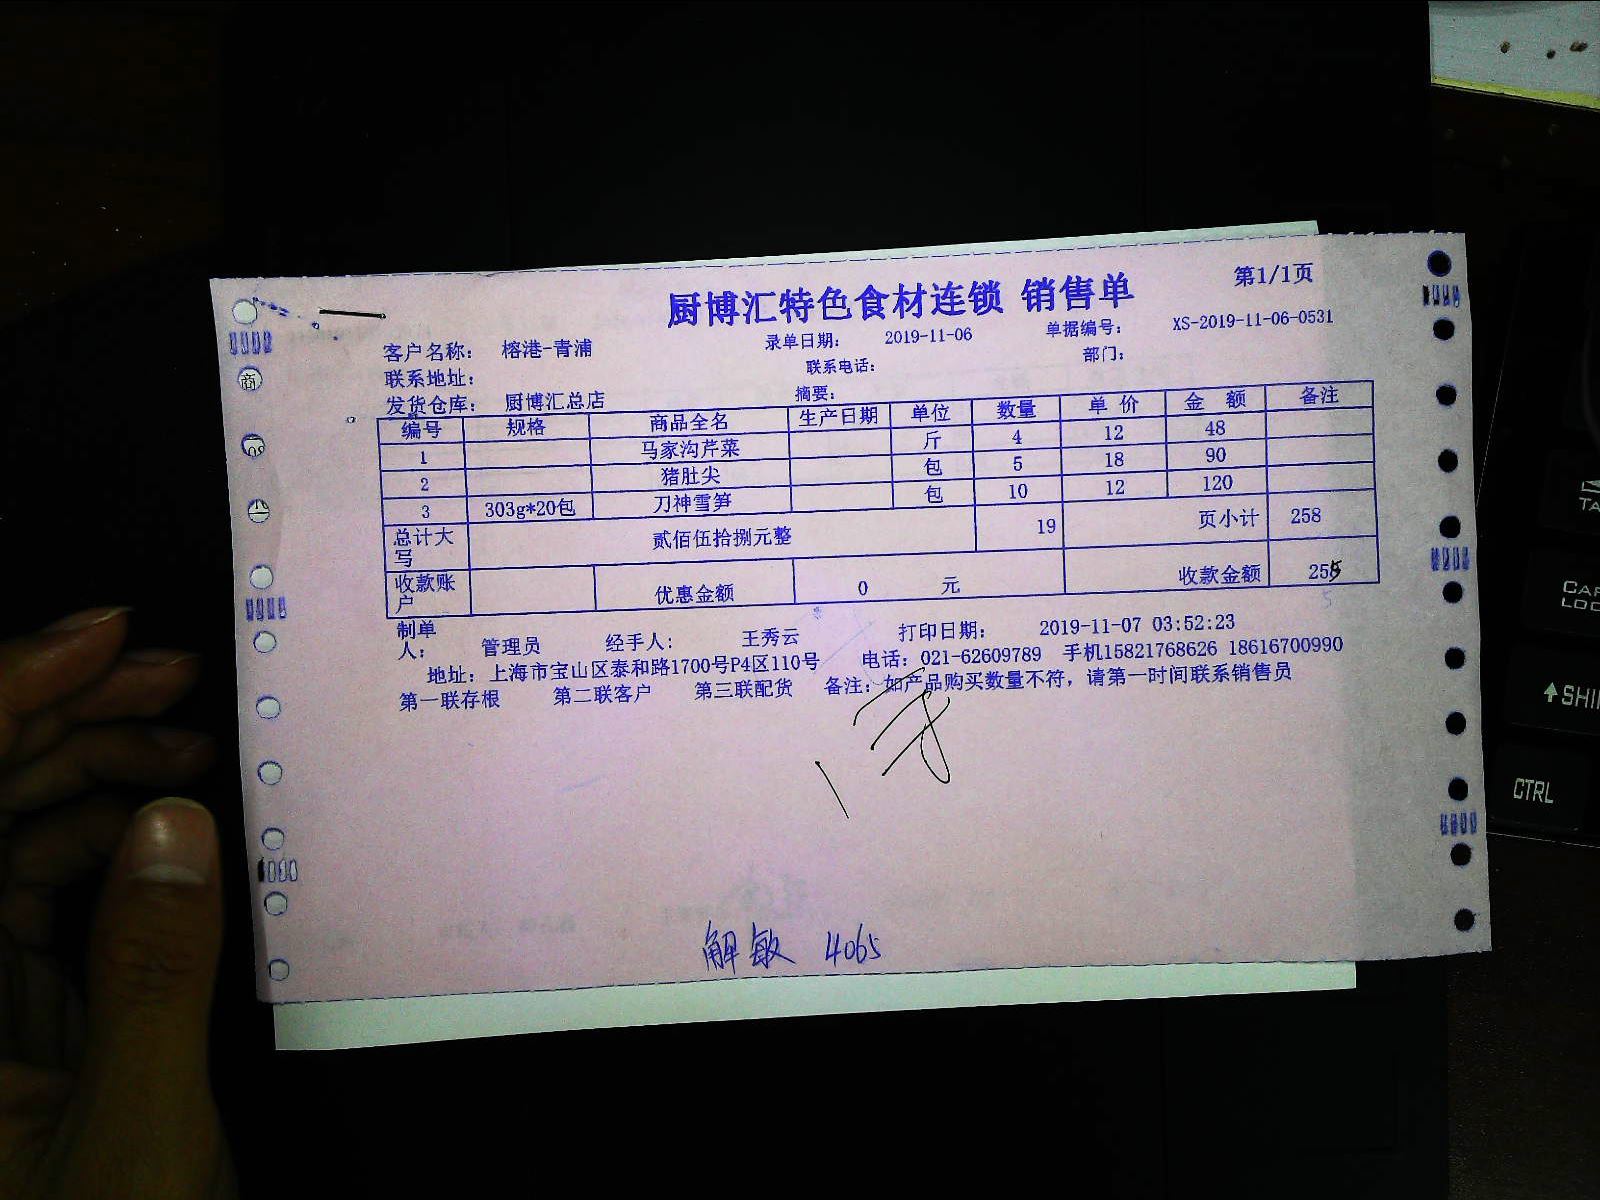 厨博汇特色食材连锁 销售单
第1/1页
客户名称： 榕港-青浦 录单日期： 2019-11-06 单据编号： XS-2019-11-06-0531
联系地址： 联系电话： 部门：
发货仓库： 厨博汇总店 摘要：
编号 规格 商品全名 生产日期 单位 数量 单 价 金 额 备注
1 马家沟芹菜 斤 4 12 48
2 猪肚尖 包 5 18 90
3 303g*20包 刀神雪笋 包 10 12 120
总计大写 贰佰伍拾捌元整 19 页小计 258
收款账户 优惠金额 0 元 收款金额 255
制单人： 管理员 经手人： 王秀云 打印日期： 2019-11-07 03:52:23
地址：上海市宝山区泰和路1700号P4区110号 电话：021-62609789 手机15821768626 18616700990
第一联存根 第二联客户 第三联配货 备注：如产品购买数量不符，请第一时间联系销售员
解敏 4065
商
TA
CAP
LOC
SHI
CTRL